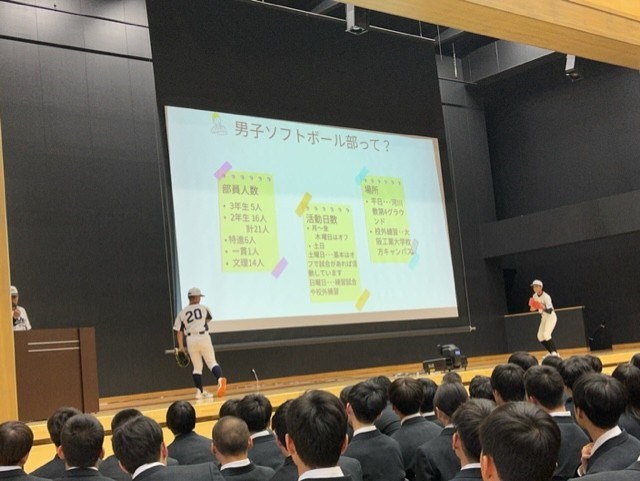 男子ソフトボール部って？
部員人数
• 3年生 5人
• 2年生 16人
計21人
• 特進6人
• 一貫1人
• 文理14人
活動日数
• 月～金
水曜日はオフ
• 土日
土曜日･･･基本はオ
フで試合があれば活
動しています
日曜日･･･練習試合
や校外練習
場所
• 平日･･･
教第4グラウ
ンド
• 校外練習･･･大
阪工業大学枚
方キャンパス
20